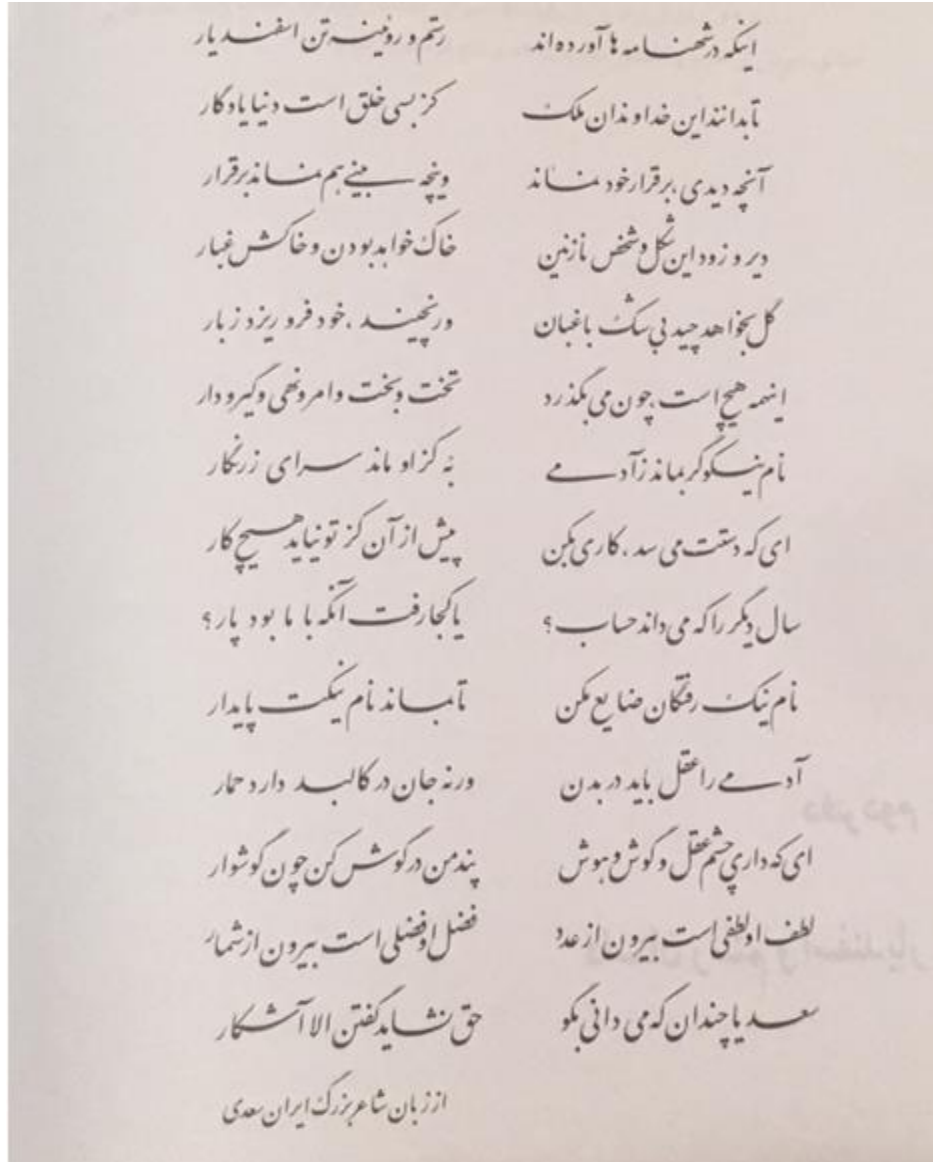 اینکه در شهنامه ها آورده اند رستم و روئینه تن اسفندیار
تا بدانند این خداوندان ملک کز بسی خلق است دنیا یادگار
آنچه دیدی، برقرار خود نماند وینچه بینی هم نماند برقرار
دیر و زود این شکل و شخص نازنین خاک خواهد بودن و خاکش غبار
گل بخواهد چید بی شک باغبان ور نچیند، خود فرو ریزد ز بار
اینهمه هیچ است، چون می بگذرد تخت و بخت و امر و نهی و گیر و دار
نام نیکو گر بماند ز آدمی به کز او ماند سرای زرنگار
ای که دستت می رسد، کاری بکن پیش از آن کز تو نیاید هیچ کار
سال دیگر را که می داند حساب؟ یا کجا رفت آنکه با ما بود پار؟
نام نیک رفتگان ضایع مکن تا بماند نام نیکت پایدار
آدمی را عقل باید در بدن ورنه جان در کالبد دارد حمار
ای که داری چشم عقل و گوش و هوش پند من در گوش کن چون گوشوار
لطف او لطفی است بیرون از عدد فضل او فضلی است بیرون از شمار
سعدیا چندان که می دانی بگو حق نشاید گفتن الا آشکار
از زبان شاعر بزرگ ایران سعدی